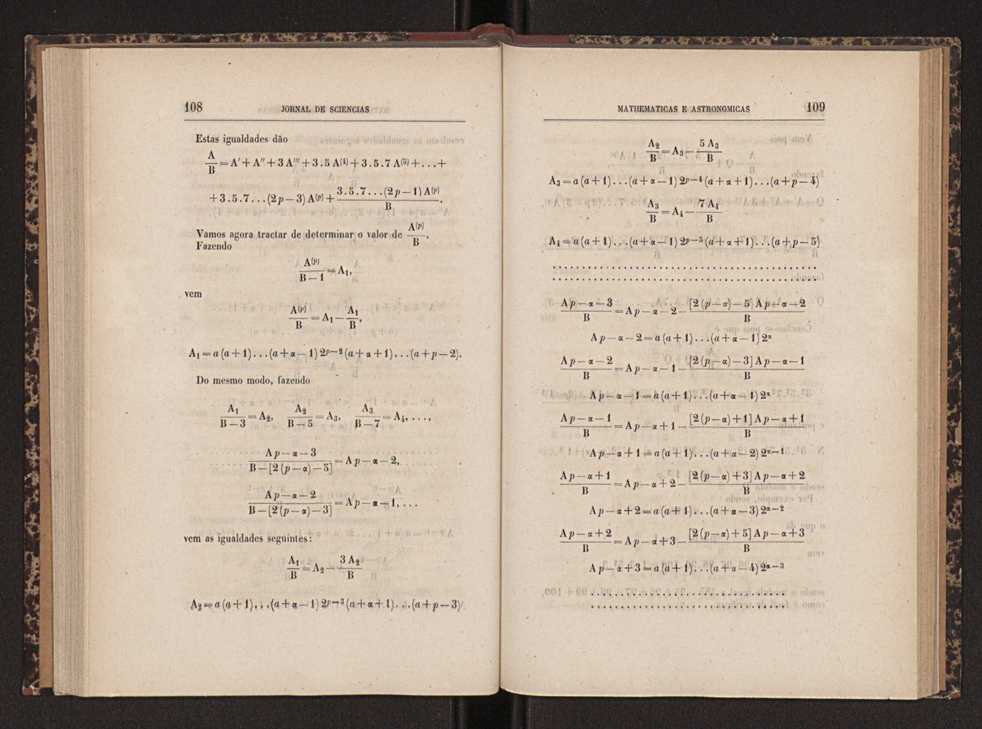 108 JORNAL DE SCIENCIAS
Estas igualdades dão
A/B = A′ + A″ + 3 A‴ + 3 . 5 A⁽⁴⁾ + 3 . 5 . 7 A⁽⁵⁾ + . . . +
+ 3 . 5 . 7 . . . (2p — 3) A⁽ᵖ⁾ + 3 . 5 . 7 . . . (2p — 1) A⁽ᵖ⁾ / B .
Vamos agora tractar de determinar o valor de A⁽ᵖ⁾/B .
Fazendo
A⁽ᵖ⁾ / B — 1 = A₁,
vem
A⁽ᵖ⁾/B = A₁ — A₁/B ,
A₁ = a (a + 1) . . . (a + α — 1) 2ᵖ⁻² (a + α + 1) . . . (a + p — 2).
Do mesmo modo, fazendo
A₁ / B — 3 = A₂, A₂ / B — 5 = A₃, A₃ / B — 7 = A₄, . . . . ,
A p — α — 3 / B — [2 (p — α) — 5] = A p — α — 2,
A p — α — 2 / B — [2 (p — α) — 3] = A p — α — 1, . . .
vem as igualdades seguintes:
A₁/B = A₂ — 3 A₂ / B
A₂ = a (a + 1) . . . (a + α — 1) 2ᵖ⁻³ (a + α + 1) . . . (a + p — 3)
MATHEMATICAS E ASTRONOMICAS 109
A₂/B = A₃ — 5 A₃ / B
A₃ = a (a + 1) . . . (a + α — 1) 2ᵖ⁻⁴ (a + α + 1) . . . (a + p — 4)
A₃/B = A₄ — 7 A₄ / B
A₄ = a (a + 1) . . . (a + α — 1) 2ᵖ⁻⁵ (a + α + 1) . . . (a + p — 5)
. . . . . . . . . . . . . . . . . . . . . . . . . . . . . . . . . . . . .
. . . . . . . . . . . . . . . . . . . . . . . . . . . . . . . . . . . . .
A p — α — 3 / B = A p — α — 2 — [2 (p — α) — 5] A p — α — 2 / B
A p — α — 2 = a (a + 1) . . . (a + α — 1) 2ᵅ
A p — α — 2 / B = A p — α — 1 — [2 (p — α) — 3] A p — α — 1 / B
A p — α — 1 = a (a + 1) . . . (a + α — 1) 2ᵅ
A p — α — 1 / B = A p — α + 1 — [2 (p — α) + 1] A p — α + 1 / B
A p — α + 1 = a (a + 1) . . . (a + α — 2) 2ᵅ⁻¹
A p — α + 1 / B = A p — α + 2 — [2 (p — α) + 3] A p — α + 2 / B
A p — α + 2 = a (a + 1) . . . (a + α — 3) 2ᵅ⁻²
A p — α + 2 / B = A p — α + 3 — [2 (p — α) + 5] A p — α + 3 / B
A p — α + 3 = a (a + 1) . . . (a + α — 4) 2ᵅ⁻³
. . . . . . . . . . . . . . . . . . . . . . . . . . .
. . . . . . . . . . . . . . . . . . . . . . . . . . .